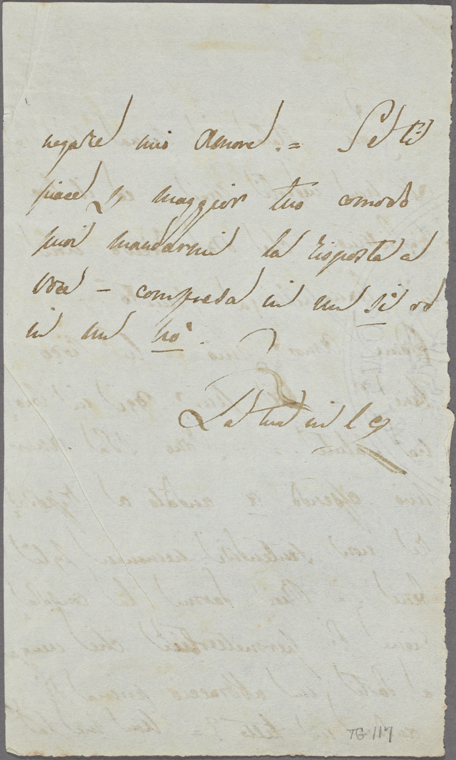 negate mio Amore. = Se ti
piace p maggior tuo comodo
puoi mandarmi la risposta a
voce — compresa in un sì od
in un nò.
La tua
TG 117